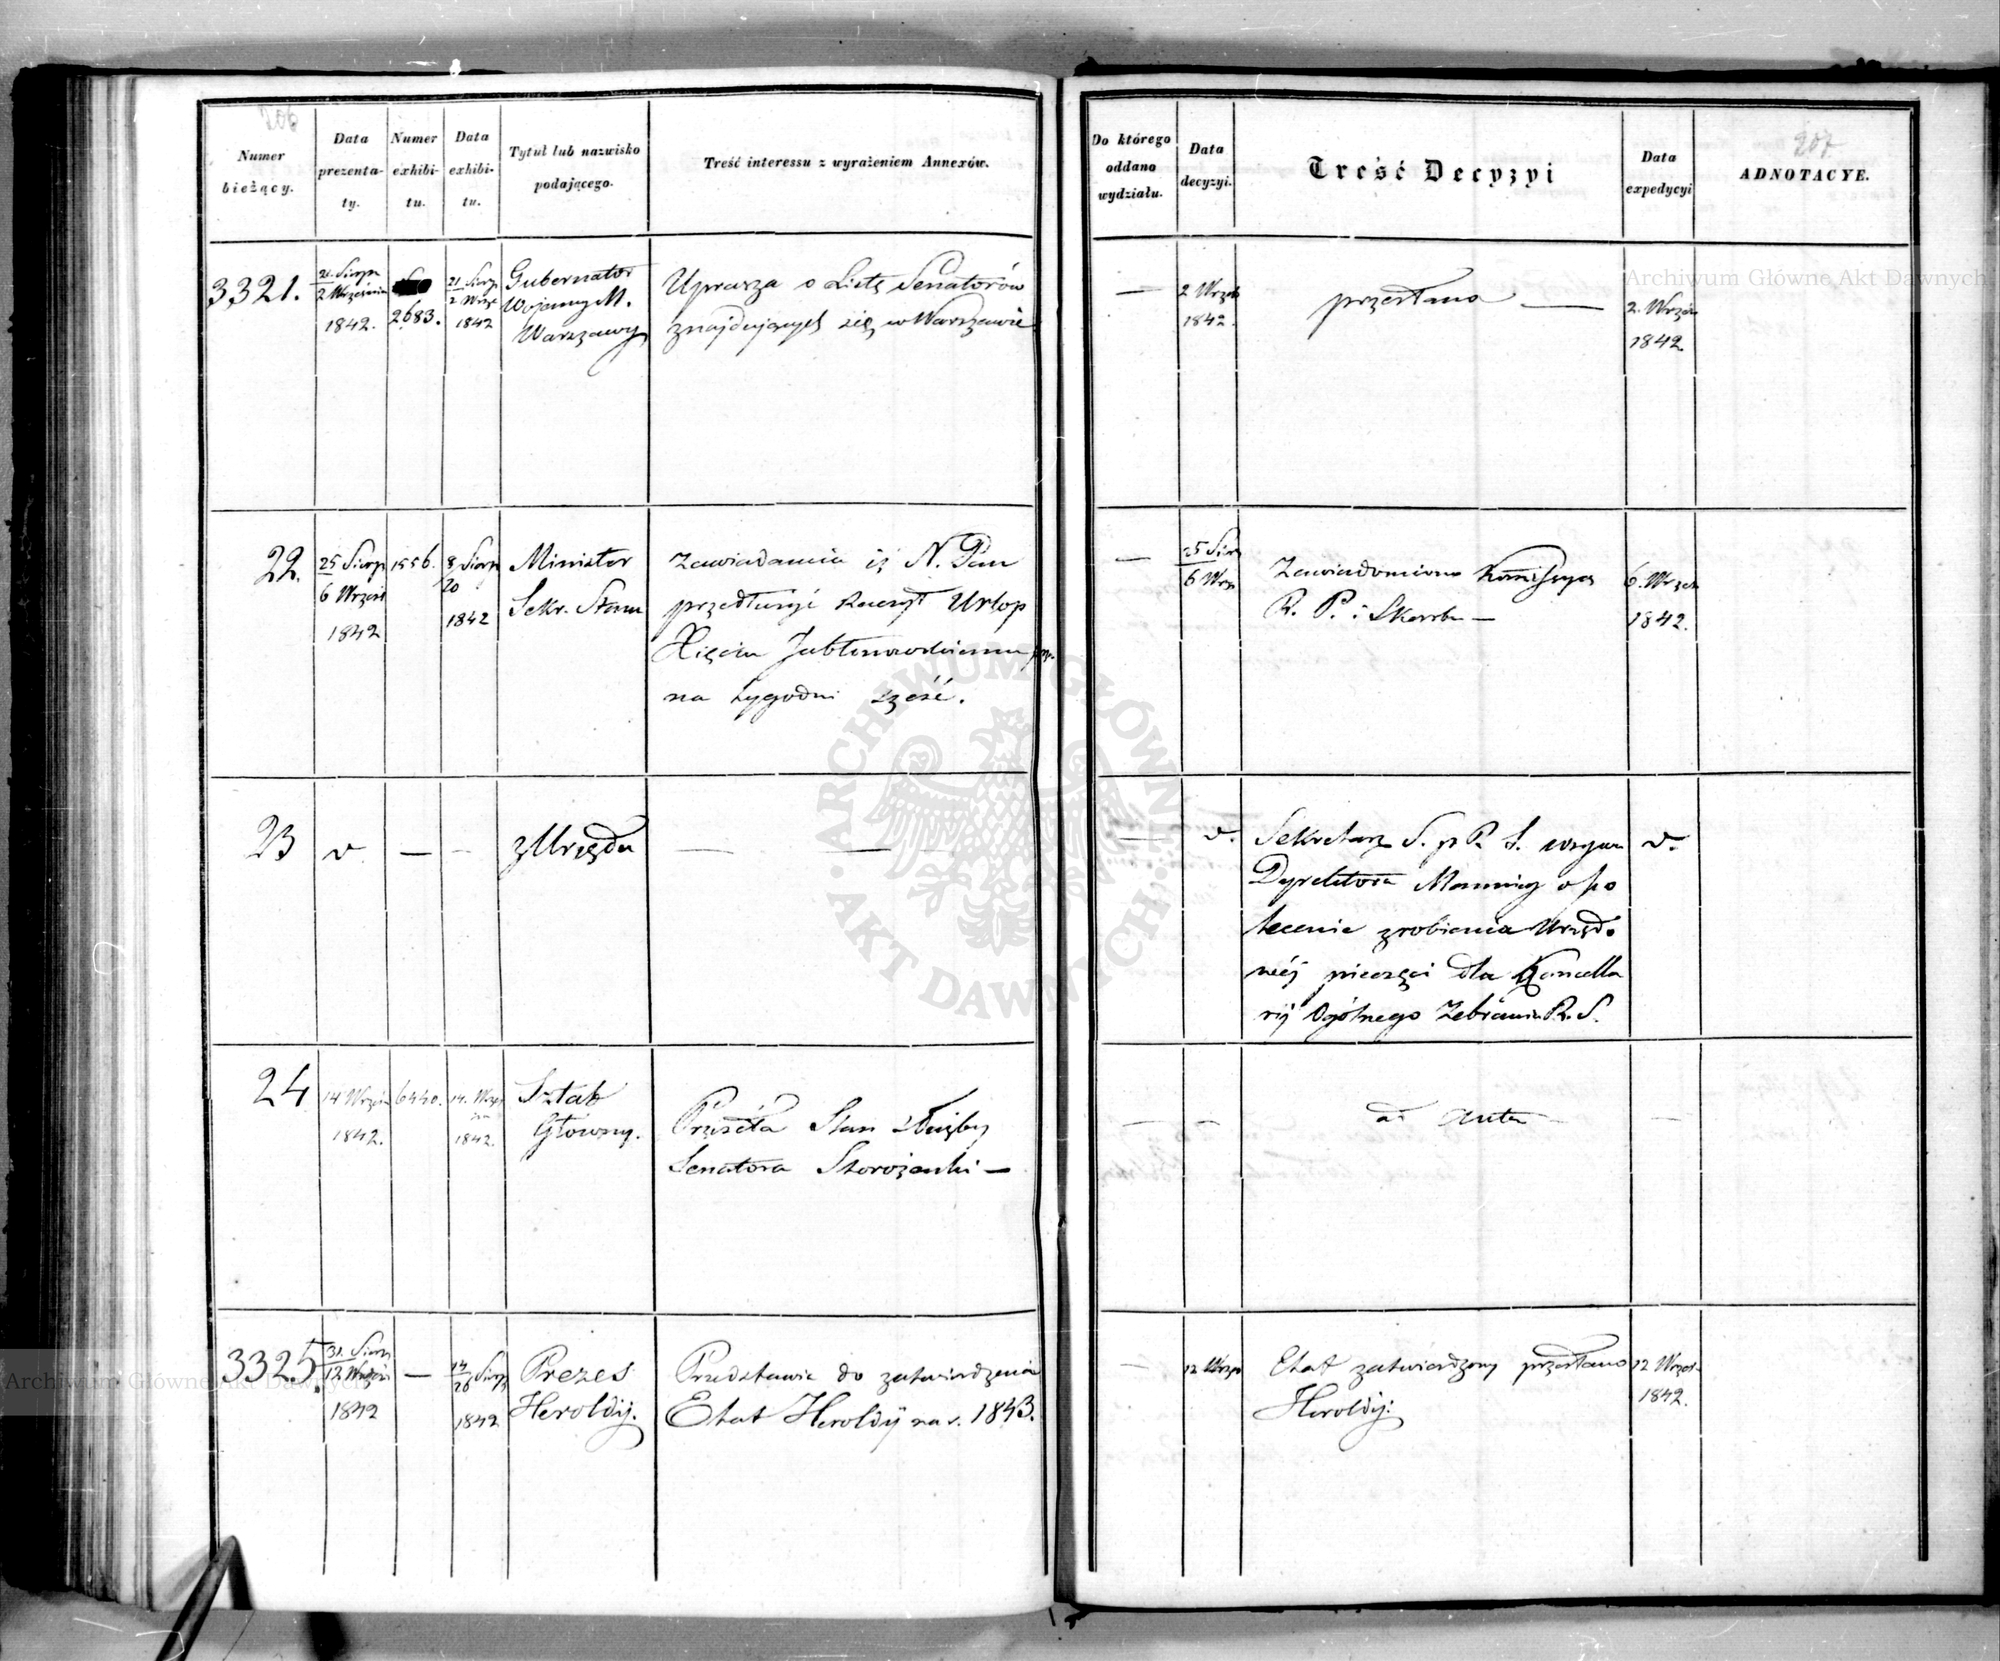 206
Numer
bieżący.
Data
prezenta-
ty.
Numer
exhibi-
tu.
Data
exhibi-
tu.
Tytuł lub nazwisko
podającego.
Treść interessu z wyrażeniem Annexów.
Do którego
oddano
wydziału.
Data
decyzyi.
Treść Decyzyi
Data
expedycyi
207
ADNOTACYE.
3321.
21. Sierpn
2 Września
1842.
2683.
21 Sierp
2 Wrze
1842
Gubernator
Wojenny M.
Warszawy
Uprasza o Listę Senatorów
znajdujących się w Warszawie
—
2 Wrześ
1842.
przesłano —
2. Wrześ
1842.
22.
25 Sierp
6 Wrześ
1842
1556.
8 Sierp
20
1842
Minister
Sekr. Stanu
Zawiadamia iż N. Pan
przedłużyć raczył Urlop
Xięciu Jabłonowskiemu
na tygodni sześć.
—
25 Sier
6 Wrz
Zawiadomiono Kommissyą
R. P. i Skarbu —
6. Wrześ
1842.
23
v.
—
—
z Urzędu
— —
—
v.
Sekretarz S. p R. S. wzywa
Dyrektora Mennicy o po
lecenie zrobienia Urzęd.
néj pieczęci dla Kancella
rij Ogólnego Zebrania R. S.
v.
24
14 Wrześ
1842.
6440.
14. Wrze
1842.
Sztab
Główny.
Przesyła Stan służby
Senatora Storożenki —
—
—
ad Acta
—
3325.
31. Sierp
12 Wrześ
1842
—
14
26 Sierp
1842
Prezes
Heroldij.
Przedstawia do zatwierdzenia
Etat Heroldij na r. 1843.
—
12 Wrze
Etat zatwierdzony przesłano
Heroldij.
12 Wrześ
1842.
Archiwum Główne Akt Dawnych
Archiwum Główne Akt Dawnych
ARCHIWUM GŁÓWNE AKT DAWNYCH